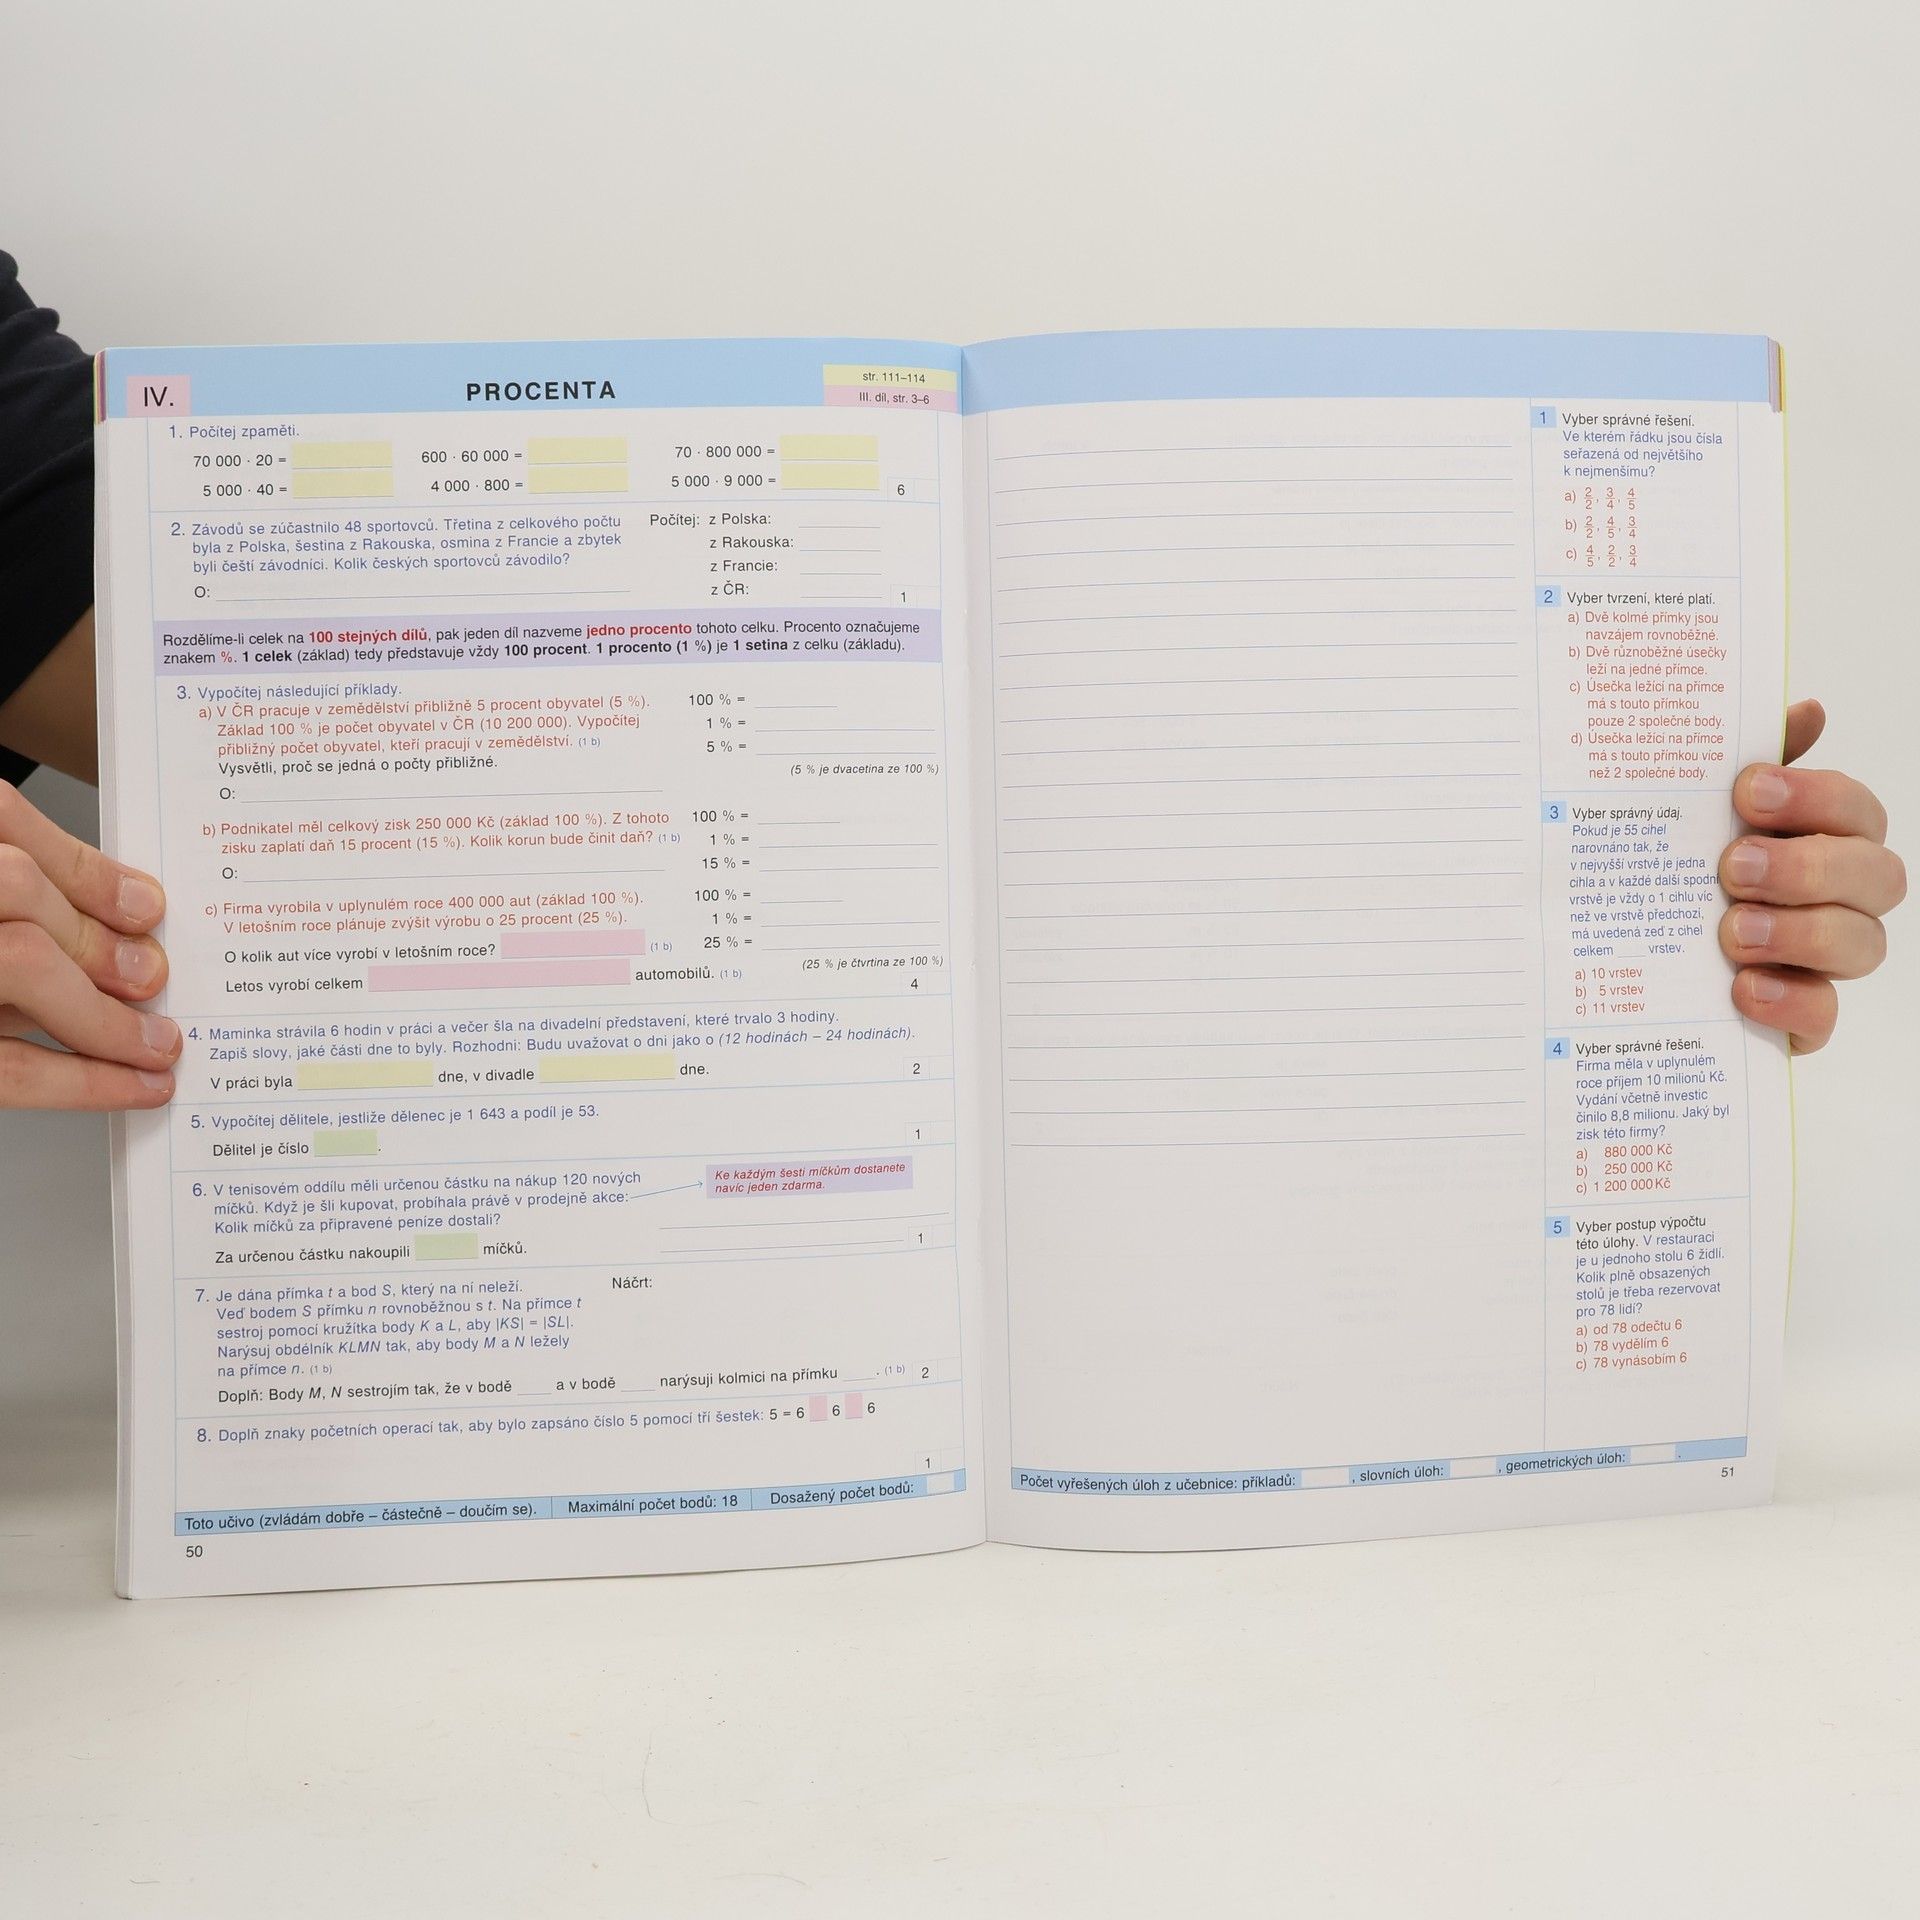 IV.
PROCENTA
str. 111–114
III. díl, str. 3–6
1. Počítej zpaměti.
70 000 · 20 =
600 · 60 000 =
70 · 800 000 =
5 000 · 40 =
4 000 · 800 =
5 000 · 9 000 =
6
2. Závodů se zúčastnilo 48 sportovců. Třetina z celkového počtu
byla z Polska, šestina z Rakouska, osmina z Francie a zbytek
byli čeští závodníci. Kolik českých sportovců závodilo?
O:
Počítej: z Polska:
z Rakouska:
z Francie:
z ČR:
1
Rozdělíme-li celek na 100 stejných dílů, pak jeden díl nazveme jedno procento tohoto celku. Procento označujeme
znakem %. 1 celek (základ) tedy představuje vždy 100 procent. 1 procento (1 %) je 1 setina z celku (základu).
3. Vypočítej následující příklady.
a) V ČR pracuje v zemědělství přibližně 5 procent obyvatel (5 %).
Základ 100 % je počet obyvatel v ČR (10 200 000). Vypočítej
přibližný počet obyvatel, kteří pracují v zemědělství. (1 b)
Vysvětli, proč se jedná o počty přibližné.
O:
100 % =
1 % =
5 % =
(5 % je dvacetina ze 100 %)
b) Podnikatel měl celkový zisk 250 000 Kč (základ 100 %). Z tohoto
zisku zaplatí daň 15 procent (15 %). Kolik korun bude činit daň? (1 b)
O:
100 % =
1 % =
15 % =
c) Firma vyrobila v uplynulém roce 400 000 aut (základ 100 %).
V letošním roce plánuje zvýšit výrobu o 25 procent (25 %).
O kolik aut více vyrobí v letošním roce? (1 b)
Letos vyrobí celkem automobilů. (1 b)
100 % =
1 % =
25 % =
(25 % je čtvrtina ze 100 %)
4
4. Maminka strávila 6 hodin v práci a večer šla na divadelní představení, které trvalo 3 hodiny.
Zapiš slovy, jaké části dne to byly. Rozhodni: Budu uvažovat o dni jako o (12 hodinách – 24 hodinách).
V práci byla dne, v divadle dne.
2
5. Vypočítej dělitele, jestliže dělenec je 1 643 a podíl je 53.
Dělitel je číslo .
1
6. V tenisovém oddílu měli určenou částku na nákup 120 nových
míčků. Když je šli kupovat, probíhala právě v prodejně akce:
Kolik míčků za připravené peníze dostali?
Za určenou částku nakoupili míčků.
Ke každým šesti míčkům dostanete
navíc jeden zdarma.
1
7. Je dána přímka t a bod S, který na ní neleží.
Veď bodem S přímku n rovnoběžnou s t. Na přímce t
sestroj pomocí kružítka body K a L, aby |KS| = |SL|.
Narýsuj obdélník KLMN tak, aby body M a N ležely
na přímce n. (1 b)
Náčrt:
Doplň: Body M, N sestrojím tak, že v bodě ____ a v bodě ____ narýsuji kolmici na přímku ____. (1 b)
2
8. Doplň znaky početních operací tak, aby bylo zapsáno číslo 5 pomocí tří šestek: 5 = 6 6 6
1
Toto učivo (zvládám dobře – částečně – doučím se).
Maximální počet bodů: 18
Dosažený počet bodů:
50
1 Vyber správné řešení.
Ve kterém řádku jsou čísla
seřazená od největšího
k nejmenšímu?
a) 2/2, 3/4, 4/5
b) 2/2, 4/5, 3/4
c) 4/5, 2/2, 3/4
2 Vyber tvrzení, které platí.
a) Dvě kolmé přímky jsou
navzájem rovnoběžné.
b) Dvě různoběžné úsečky
leží na jedné přímce.
c) Úsečka ležící na přímce
má s touto přímkou
pouze 2 společné body.
d) Úsečka ležící na přímce
má s touto přímkou více
než 2 společné body.
3 Vyber správný údaj.
Pokud je 55 cihel
narovnáno tak, že
v nejvyšší vrstvě je jedna
cihla a v každé další spodní
vrstvě je vždy o 1 cihlu víc
než ve vrstvě předchozí,
má uvedená zeď z cihel
celkem ____ vrstev.
a) 10 vrstev
b) 5 vrstev
c) 11 vrstev
4 Vyber správné řešení.
Firma měla v uplynulém
roce příjem 10 milionů Kč.
Vydání včetně investic
činilo 8,8 milionu. Jaký byl
zisk této firmy?
a) 880 000 Kč
b) 250 000 Kč
c) 1 200 000 Kč
5 Vyber postup výpočtu
této úlohy. V restauraci
je u jednoho stolu 6 židlí.
Kolik plně obsazených
stolů je třeba rezervovat
pro 78 lidí?
a) od 78 odečtu 6
b) 78 vydělím 6
c) 78 vynásobím 6
Počet vyřešených úloh z učebnice: příkladů: , slovních úloh: , geometrických úloh: .
51